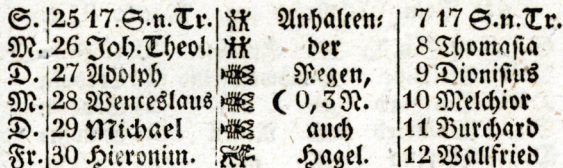 S. 25 17. S. n. Tr. Anhalten: 7 17 S. n. Tr.
M. 26 Joh. Theol. der 8 Thomasia
D. 27 Adolph Regen, 9 Dionisius
M. 28 Wenceslaus ☾ 0, 3 N. 10 Melchior
D. 29 Michael auch 11 Burchard
Fr. 30 Hieronim. Hagel. 12 Wallfried